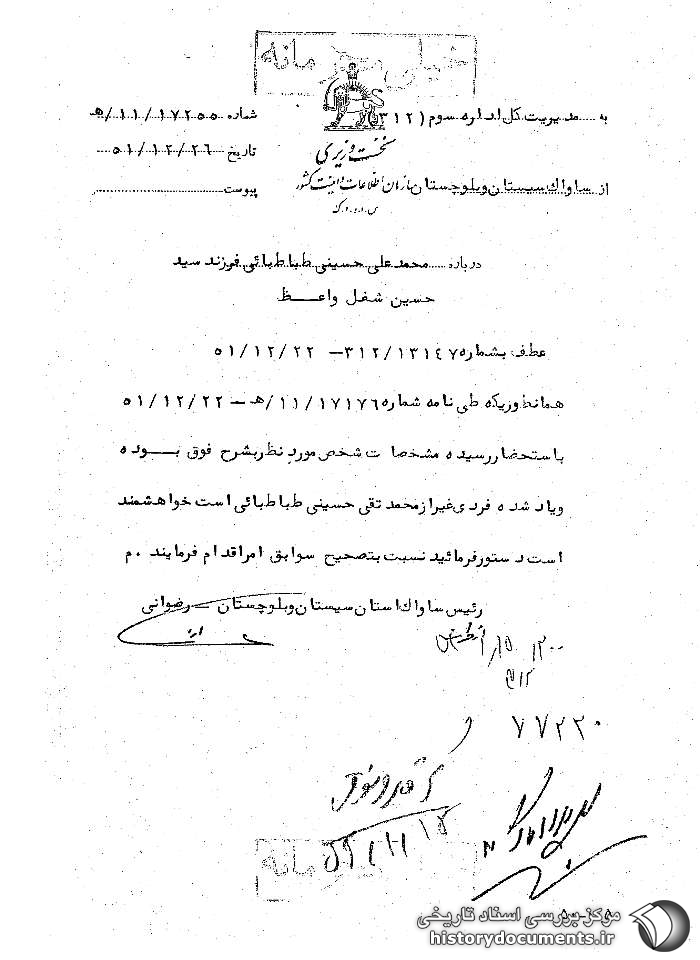 خیلی محرمانه
به مدیریت کل اداره سوم (۳۱۲)
شماره ۱۷۲۵۵/۱۱/ﻫ
نخست وزیری
تاریخ ۵۱/۱۲/۲۶
از ساواك سیستان و بلوچستان
سازمان اطلاعات و امنیت کشور
پیوست
س.ا.و.ا.ک
درباره محمد علی حسینی طباطبائی فرزند سید
حسین شغل واعظ
عطف بشماره ۳۱۲/۱۳۱۴۷ – ۵۱/۱۲/۲۲
همانطوریکه طی نامه شماره ۱۷۱۷۶/۱۱/ﻫ – ۵۱/۱۲/۲۲
باستحضار رسیده مشخصات شخص مورد نظر بشرح فوق بوده
ویاد شده فردی غیر از محمد تقی حسینی طباطبائی است خواهشمند
است دستور فرمائید نسبت بتصحیح سوابق امر اقدام فرمایند . م
رئیس ساواك استان سیستان و بلوچستان – رضوانی
۳۱۲
۷۷۲۲۰
محرمانه
مرکز بررسی اسناد تاریخی
historydocuments.ir